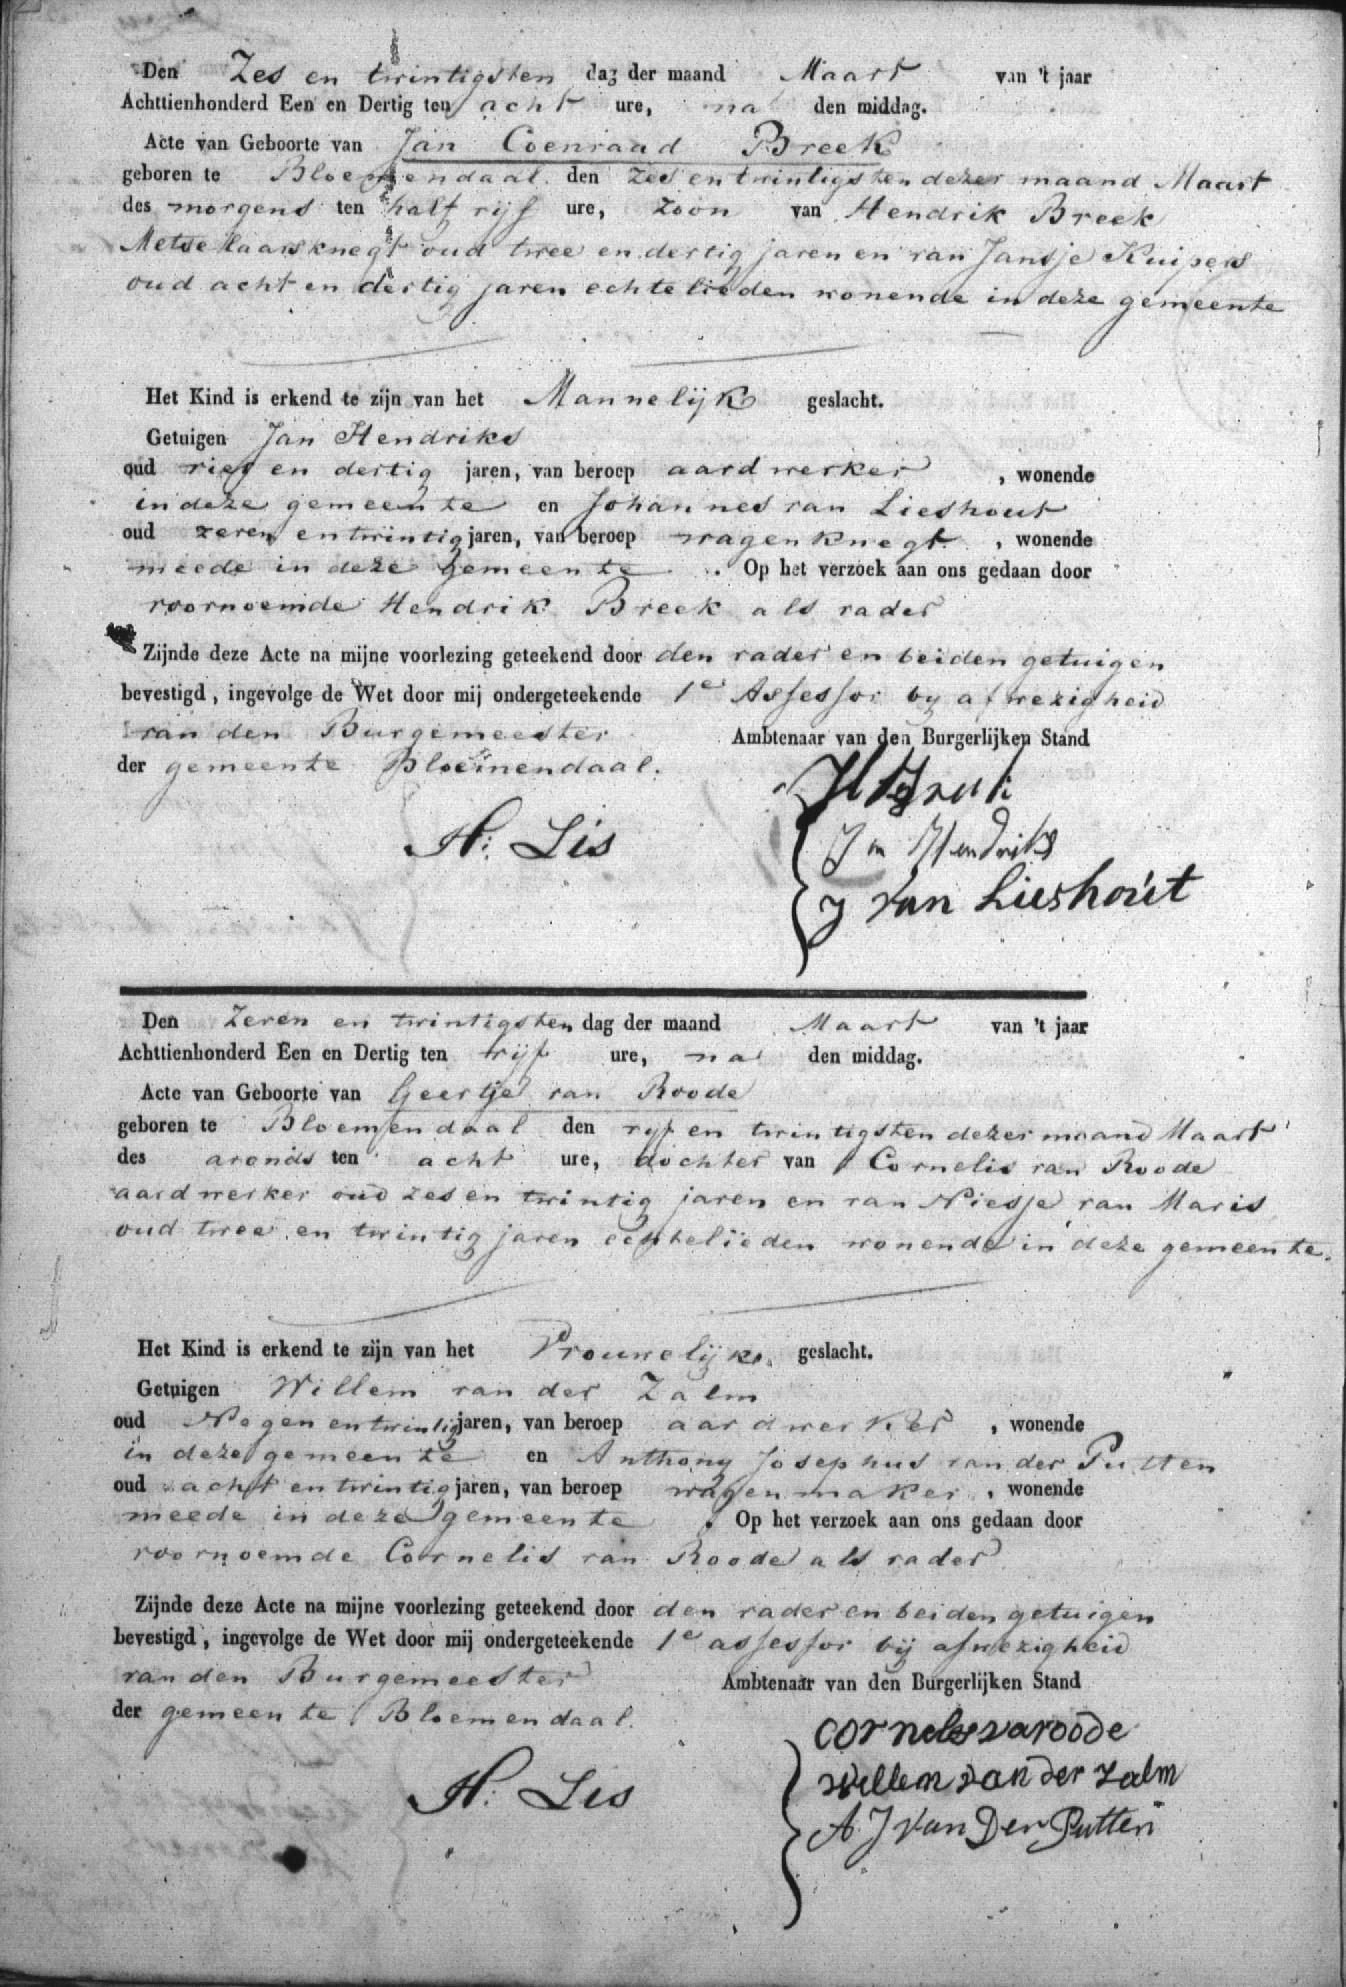 Den Zes en twintigsten dag der maand Maart van 't jaar
Achttienhonderd Een en Dertig ten acht ure, na den middag.
Acte van Geboorte van Jan Coenraad Breek
geboren te Bloemendaal den zes en twintigsten dezer maand Maart
des morgens ten half vijf ure, zoon van Hendrik Breek
Metselaarsknegt oud twee en dertig jaren en van Jansje Kuipers
oud acht en dertig jaren echtelieden wonende in deze gemeente
Het Kind is erkend te zijn van het Mannelijk geslacht.
Getuigen Jan Hendriks
oud vier en dertig jaren, van beroep aardwerker, wonende
in deze gemeente en Johannes van Lieshout
oud zeven en twintig jaren, van beroep wagenknegt, wonende
meede in deze gemeente. Op het verzoek aan ons gedaan door
voornoemde Hendrik Breek als vader
Zijnde deze Acte na mijne voorlezing geteekend door den vader en beiden getuigen
bevestigd, ingevolge de Wet door mij ondergeteekende 1e Assessor by afwezigheid
van den Burgemeester Ambtenaar van den Burgerlijken Stand
der gemeente Bloemendaal.
H. Lis
Hendriks
J van Lieshout
Den Zeven en twintigsten dag der maand Maart van 't jaar
Achttienhonderd Een en Dertig ten vijf ure, na den middag.
Acte van Geboorte van Geertje van Roode
geboren te Bloemendaal den vyf en twintigsten dezer maand Maart
des avonds ten acht ure, dochter van Cornelis van Roode
aardwerker oud zes en twintig jaren en van Niesje van Maris
oud twee en twintig jaren echtelieden wonende in deze gemeente.
Het Kind is erkend te zijn van het Vrouwelijk geslacht.
Getuigen Willem van der Zalm
oud Negen en twintig jaren, van beroep aardwerker, wonende
in deze gemeente en Anthony Josephus van der Putten
oud acht en twintig jaren, van beroep wagenmaker, wonende
meede in deze gemeente. Op het verzoek aan ons gedaan door
voornoemde Cornelis van Roode als vader
Zijnde deze Acte na mijne voorlezing geteekend door den vader en beiden getuigen
bevestigd, ingevolge de Wet door mij ondergeteekende 1e assessor bij afwezigheid
van den Burgemeester Ambtenaar van den Burgerlijken Stand
der gemeente Bloemendaal.
cornelis va roode
H. Lis
willem van der zalm
A. J van Der Putten